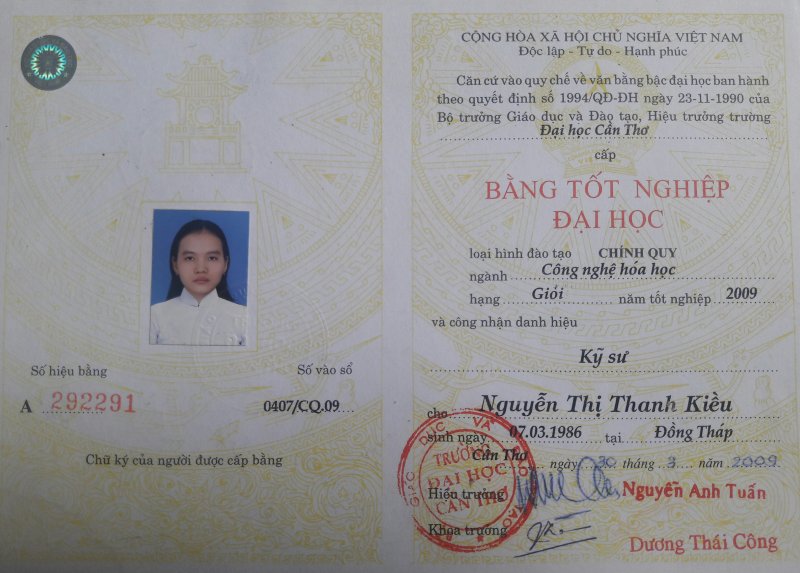 Số hiệu bằng
Số vào sổ
A 292291
0407/CQ.09
Chữ ký của người được cấp bằng
CỘNG HÒA XÃ HỘI CHỦ NGHĨA VIỆT NAM
Độc lập - Tự do - Hạnh phúc
Căn cứ vào quy chế về văn bằng bậc đại học ban hành
theo quyết định số 1994/QĐ-ĐH ngày 23-11-1990 của
Bộ trưởng Giáo dục và Đào tạo, Hiệu trưởng trường
Đại học Cần Thơ
cấp
BẰNG TỐT NGHIỆP
ĐẠI HỌC
loại hình đào tạo CHÍNH QUY
ngành Công nghệ hóa học
hạng Giỏi năm tốt nghiệp 2009
và công nhận danh hiệu
Kỹ sư
cho Nguyễn Thị Thanh Kiều
sinh ngày 07.03.1986 tại Đồng Tháp
Cần Thơ, ngày 30 tháng 3 năm 2009
Hiệu trưởng Nguyễn Anh Tuấn
Khoa trưởng
Dương Thái Công
TRƯỜNG
ĐẠI HỌC
CẦN THƠ